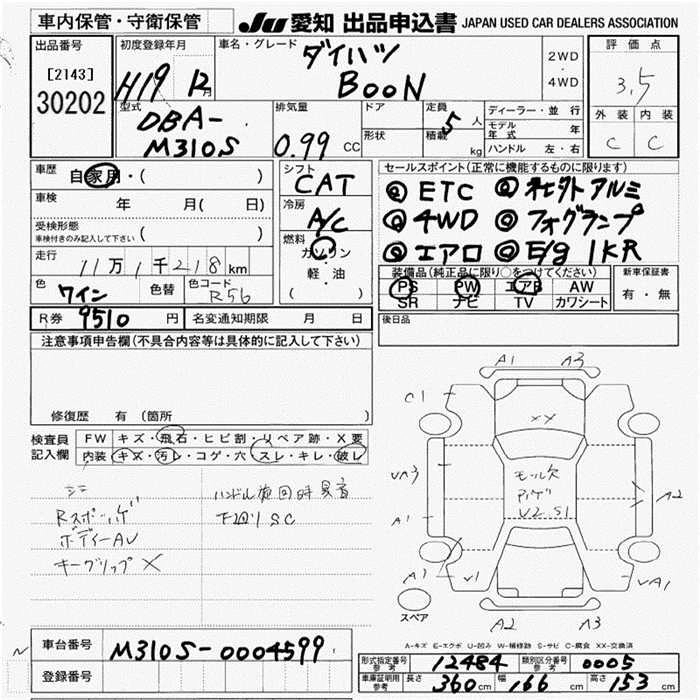 車内保管・守衛保管
JU 愛知 出品申込書 JAPAN USED CAR DEALERS ASSOCIATION
出品番号
[2143]
30202
初度登録年月
H19 12月
車名・グレード
ダイハツ
BOON
2WD
・
4WD
評価点
3,5
外装 内装
C C
型式
DBA-
M310S
排気量
0.99 CC
ドア
形状
定員
5人
積載
kg
ディーラー・並行
モデル年式 年
ハンドル 左・右
車歴
自家用・( )
車検
年 月( 日)
受検形態
車検付きのみ記入して下さい ( )
走行
11万1千218km
色
ワイン
色替
色コード
R56
シフト
CAT
冷房
A/C
燃料
ガソリン
軽・油
( )
セールスポイント(正常に機能するものに限ります)
◎ ETC ◎ 社外アルミ
◎ 4WD ◎ フォグランプ
◎ エアロ ◎ E/g 1KR
装備品(純正品に限り○をつけてください)
PS PW エアB AW
SR ナビ TV カワシート
新車保証書
有・無
R券 9510円 名変通知期限 月 日
後日品
注意事項申告欄(不具合内容等は具体的に記入して下さい)
修復歴 有(箇所
検査員記入欄
FW キズ・飛石・ヒビ割・リペア跡・X要
内装 キズ・汚レ・コゲ・穴 スレ・キレ・破レ
ハンドル旋回時異音
Rスポハゲ 下廻りSC
ボディーAU
キーグリップ X
A1 A3
C1
XX
UA3
モール欠
U2 S1
A1
A2
A1
V1
UA1
スペア
A2 A3
A-キズ E-エクボ U-凹み W-補修跡 S-サビ C-腐食 XX-交換済
車台番号 M310S-0004599
登録番号
型式指定番号参考 12484 類別区分番号参考 0005
車庫証明用参考 長さ 360cm 幅 166cm 高さ 153cm